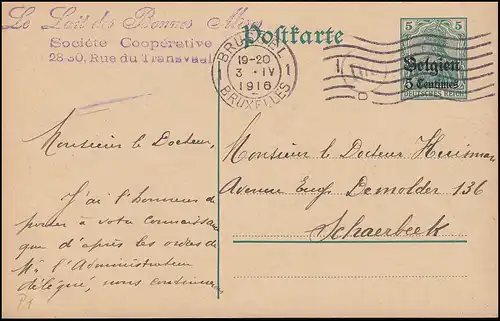 Le Lait des Bonnes Mères
Société Coopérative
28-30, Rue du Transvaal
Postkarte
BRUSSEL
19-20
3 - IV
1 1
1916
BRUXELLES
5 5
Belgien
5 Centimes
DEUTSCHES REICH
Monsieur le Docteur,
J'ai l'honneur de
porter à votre connaissance
que d'après les ordres de
Mr l'Administrateur
délégué, nous continuerons
P1
Monsieur le Docteur Huisman
Avenue Eug. Demolder 136
Schaerbeek